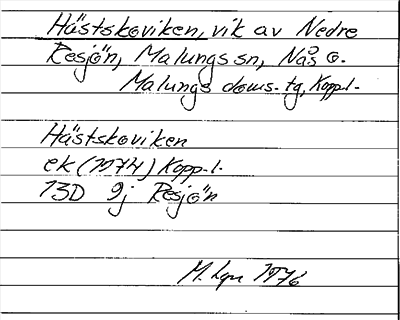 Hästskoviken, vik av Nedre
Resjön, Malungs sn, Nås o.
Malungs doms. tg, Kopp.l.
Hästskoviken
ek (1974) Kopp.l.
13D 9j Resjön
M. 1976